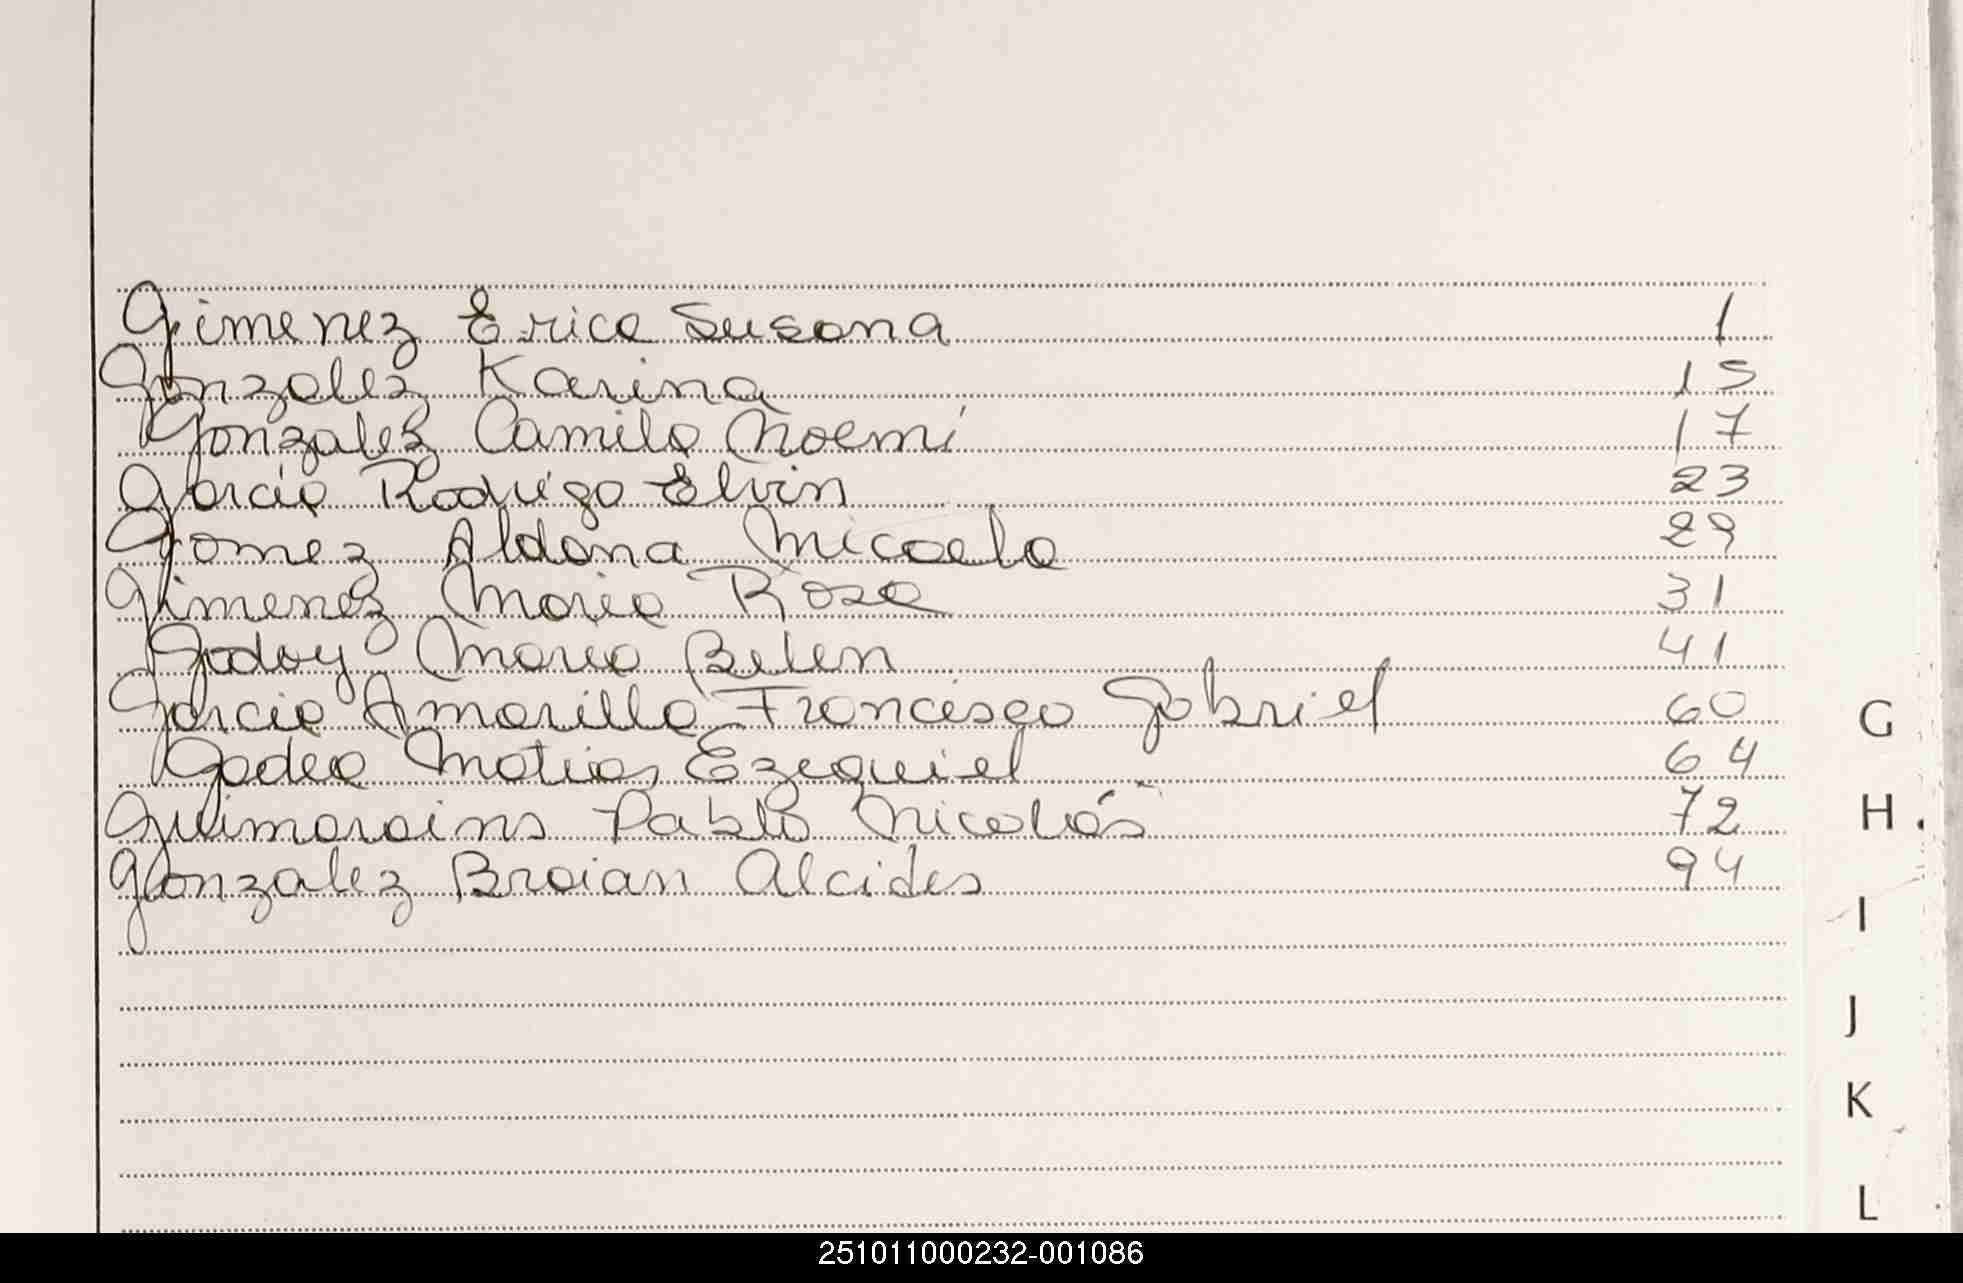 Gimenez Erica Susana 1
Gonzalez Karina 15
Gonzalez Camila Noemí 17
Garcia Rodrigo Elvin 23
Gomez Aldana Micaela 29
Gimenez Maria Rosa 31
Godoy Maria Belen 41
Garcia Amarilla Francisco Gabriel 60
G
Godea Matias Ezequiel 64
Guimarains Pablo Nicolás 72
H
Gonzalez Braian Alcides 94
I
J
K
L
251011000232-001086